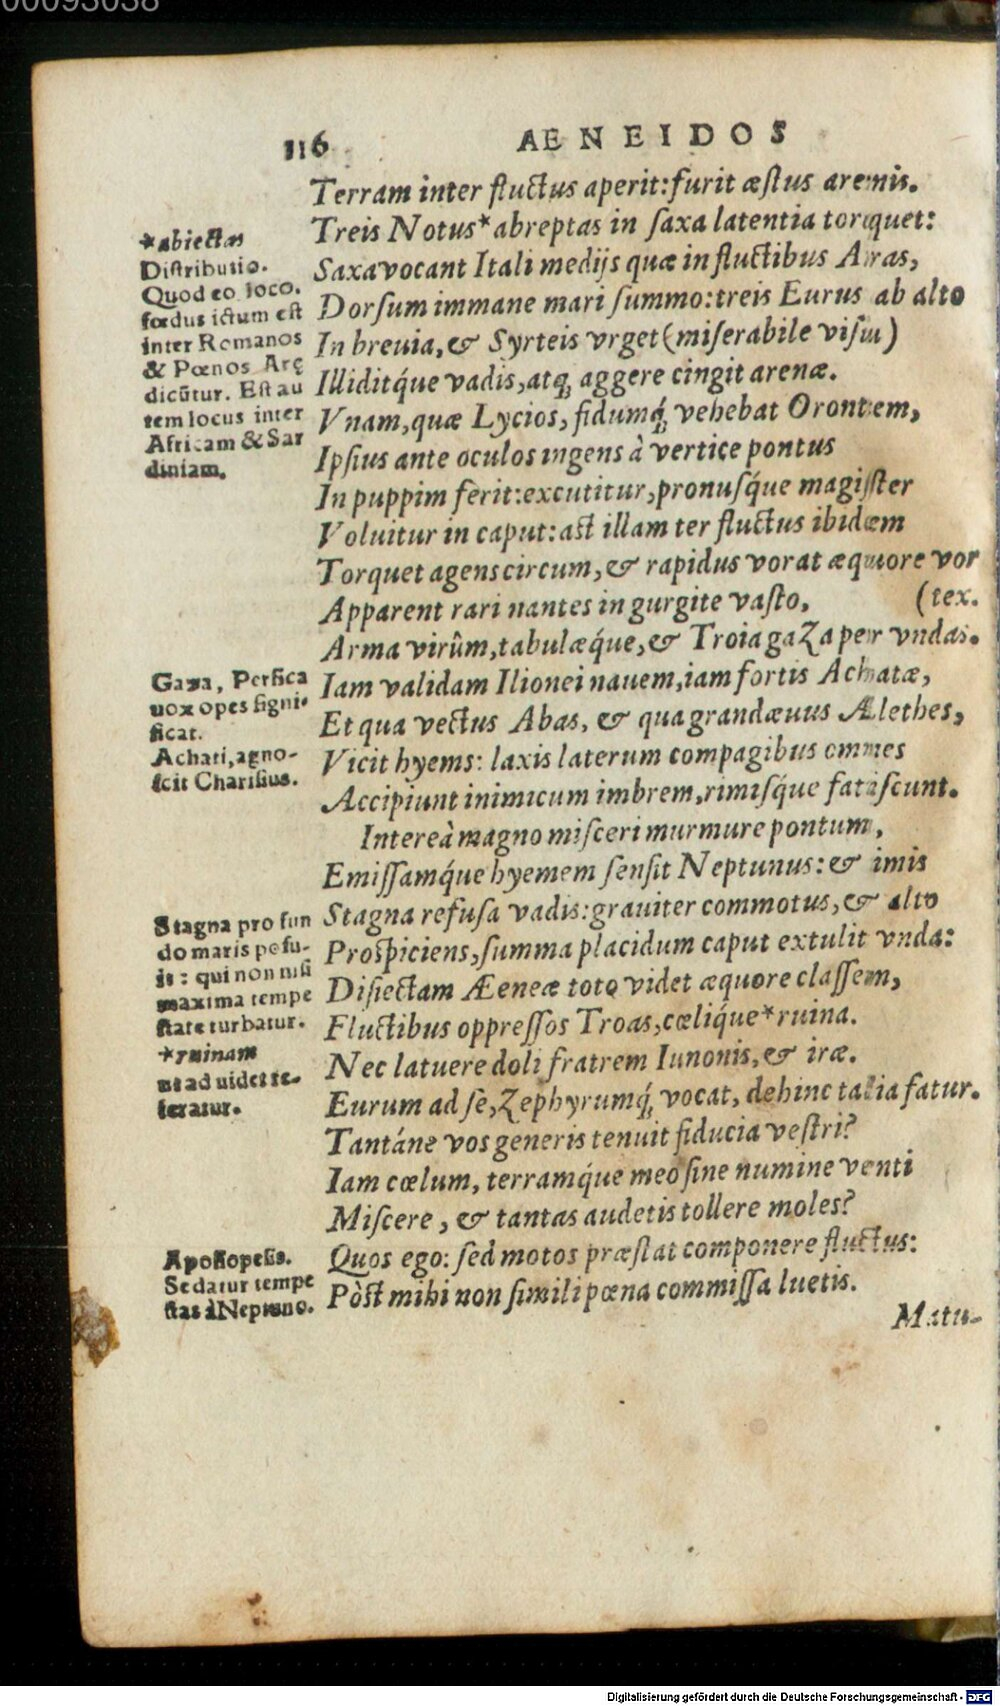 00093038
116 AENEIDOS
Terram inter fluctus aperit: furit æstus arenis.
Treis Notus* abreptas in saxa latentia torquet:
Saxa vocant Itali medijs quæ in fluctibus Aras,
Dorsum immane mari summo: treis Eurus ab alto
In breuia, & Syrteis vrget (miserabile visu)
Illiditq́ue vadis, atq; aggere cingit arenæ.
Vnam, quæ Lycios, fidumq́; vehebat Orontem,
Ipsius ante oculos ingens à vertice pontus
In puppim ferit: excutitur, pronusq́ue magister
Voluitur in caput: ast illam ter fluctus ibidem
Torquet agens circum, & rapidus vorat æquore vor
(tex.
Apparent rari nantes in gurgite vasto,
Arma virûm, tabulæq́ue, & Troia gaza per vndas.
Iam validam Ilionei nauem, iam fortis Achatæ,
Et qua vectus Abas, & qua grandæuus Ælethes,
Vicit hyems: laxis laterum compagibus omnes
Accipiunt inimicum imbrem, rimisq́ue fatiscunt.
Intereà magno misceri murmure pontum,
Emissamq́ue hyemem sensit Neptunus: & imis
Stagna refusa vadis: grauiter commotus, & alto
Prospiciens, summa placidum caput extulit vnda:
Disiectam Æneæ toto videt æquore classem,
Fluctibus oppressos Troas, cæliq́ue* ruina.
Nec latuere doli fratrem Iunonis, & iræ.
Eurum ad se, Zephyrumq́; vocat, dehinc talia fatur.
Tantáne vos generis tenuit fiducia vestri?
Iam cœlum, terramq́ue meo sine numine venti
Miscere, & tantas audetis tollere moles?
Quos ego: sed motos præstat componere fluctus:
Pòst mihi non simili pœna commissa luetis.
Matu-
*abiectas
Distributio.
Quod eo loco.
fœdus ictum est
inter Romanos
& Pœnos Arę
dicũtur. Est au
tem locus inter
Africam & Sar
diniam.
Gaza, Persica
uox opes signi-
ficat.
Achati, agno-
scit Charisius.
Stagna pro fun
do maris posu-
it: qui non nisi
maxima tempe
state turbatur.
*ruinam
ut ad uidet re-
feratur.
Aposiopesis.
Sedatur tempe
stas à Neptuno.
Digitalisierung gefördert durch die Deutsche Forschungsgemeinschaft - DFG